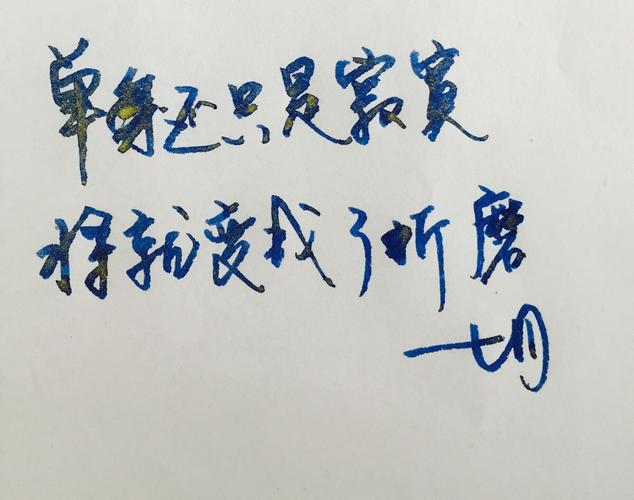 单身还只是寂寞
将就变成了折磨
七月